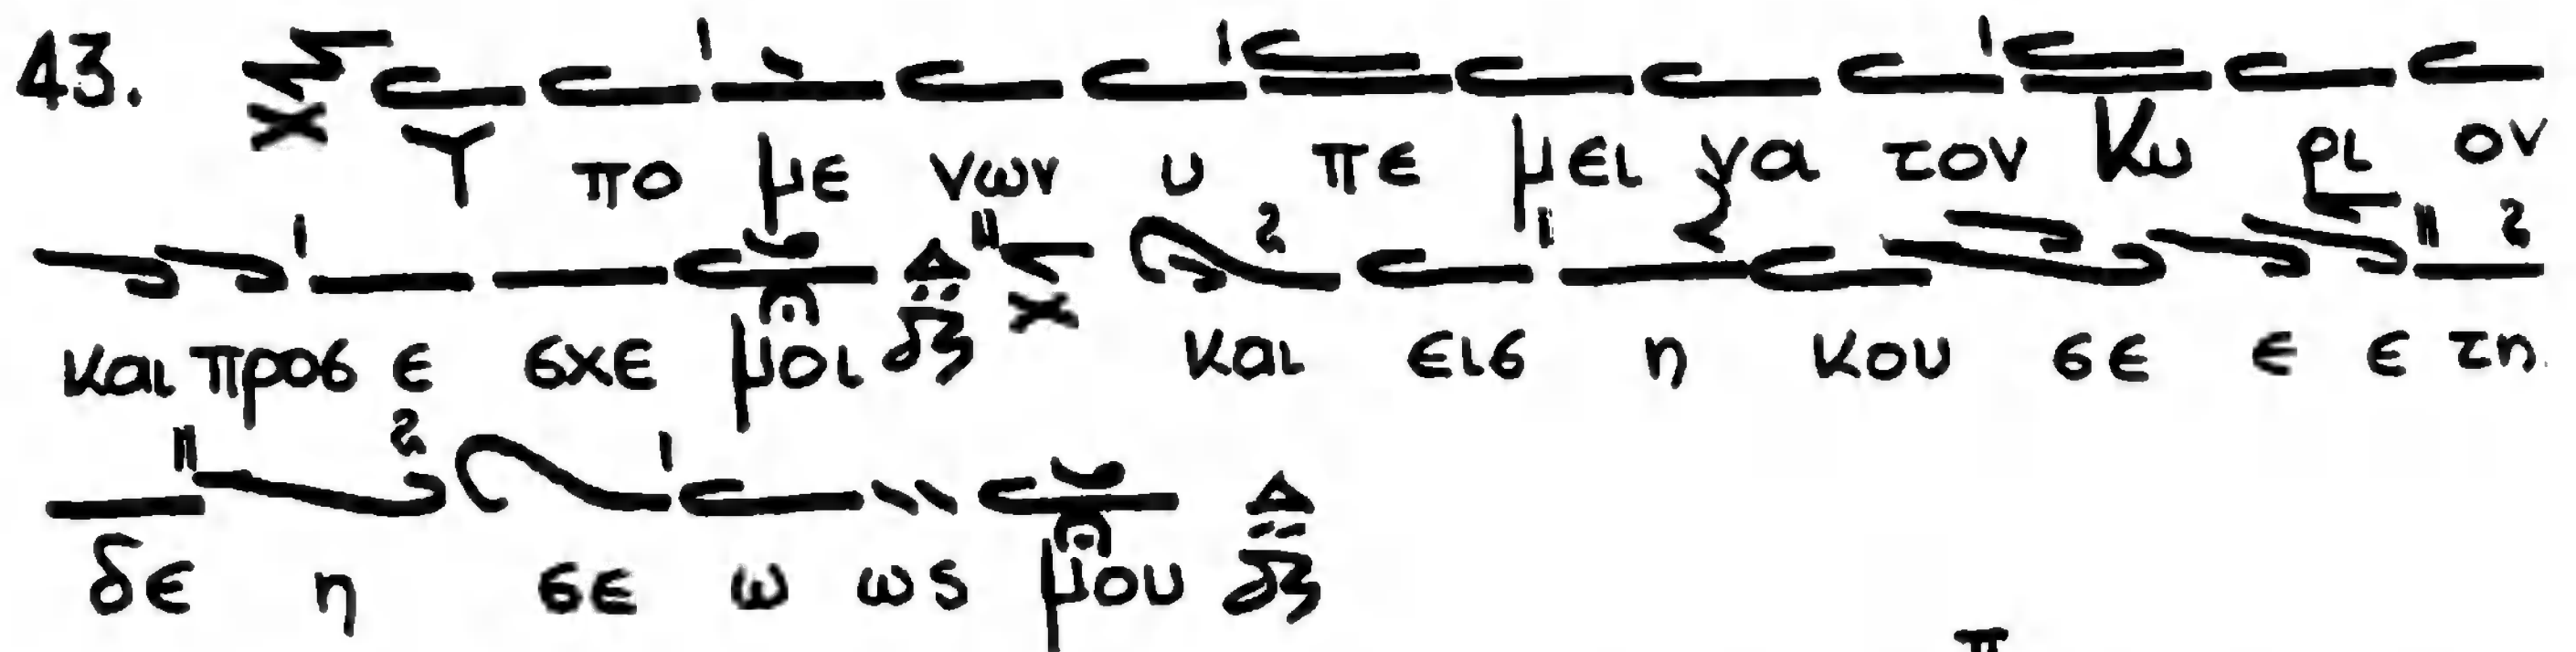 43. Υ πο με νων υ πε μει να τον Κυ ρι ον
και προσ ε σχε μοι δι και εισ η κου σε ε ε τη
δε η σε ω ως μου δι
π